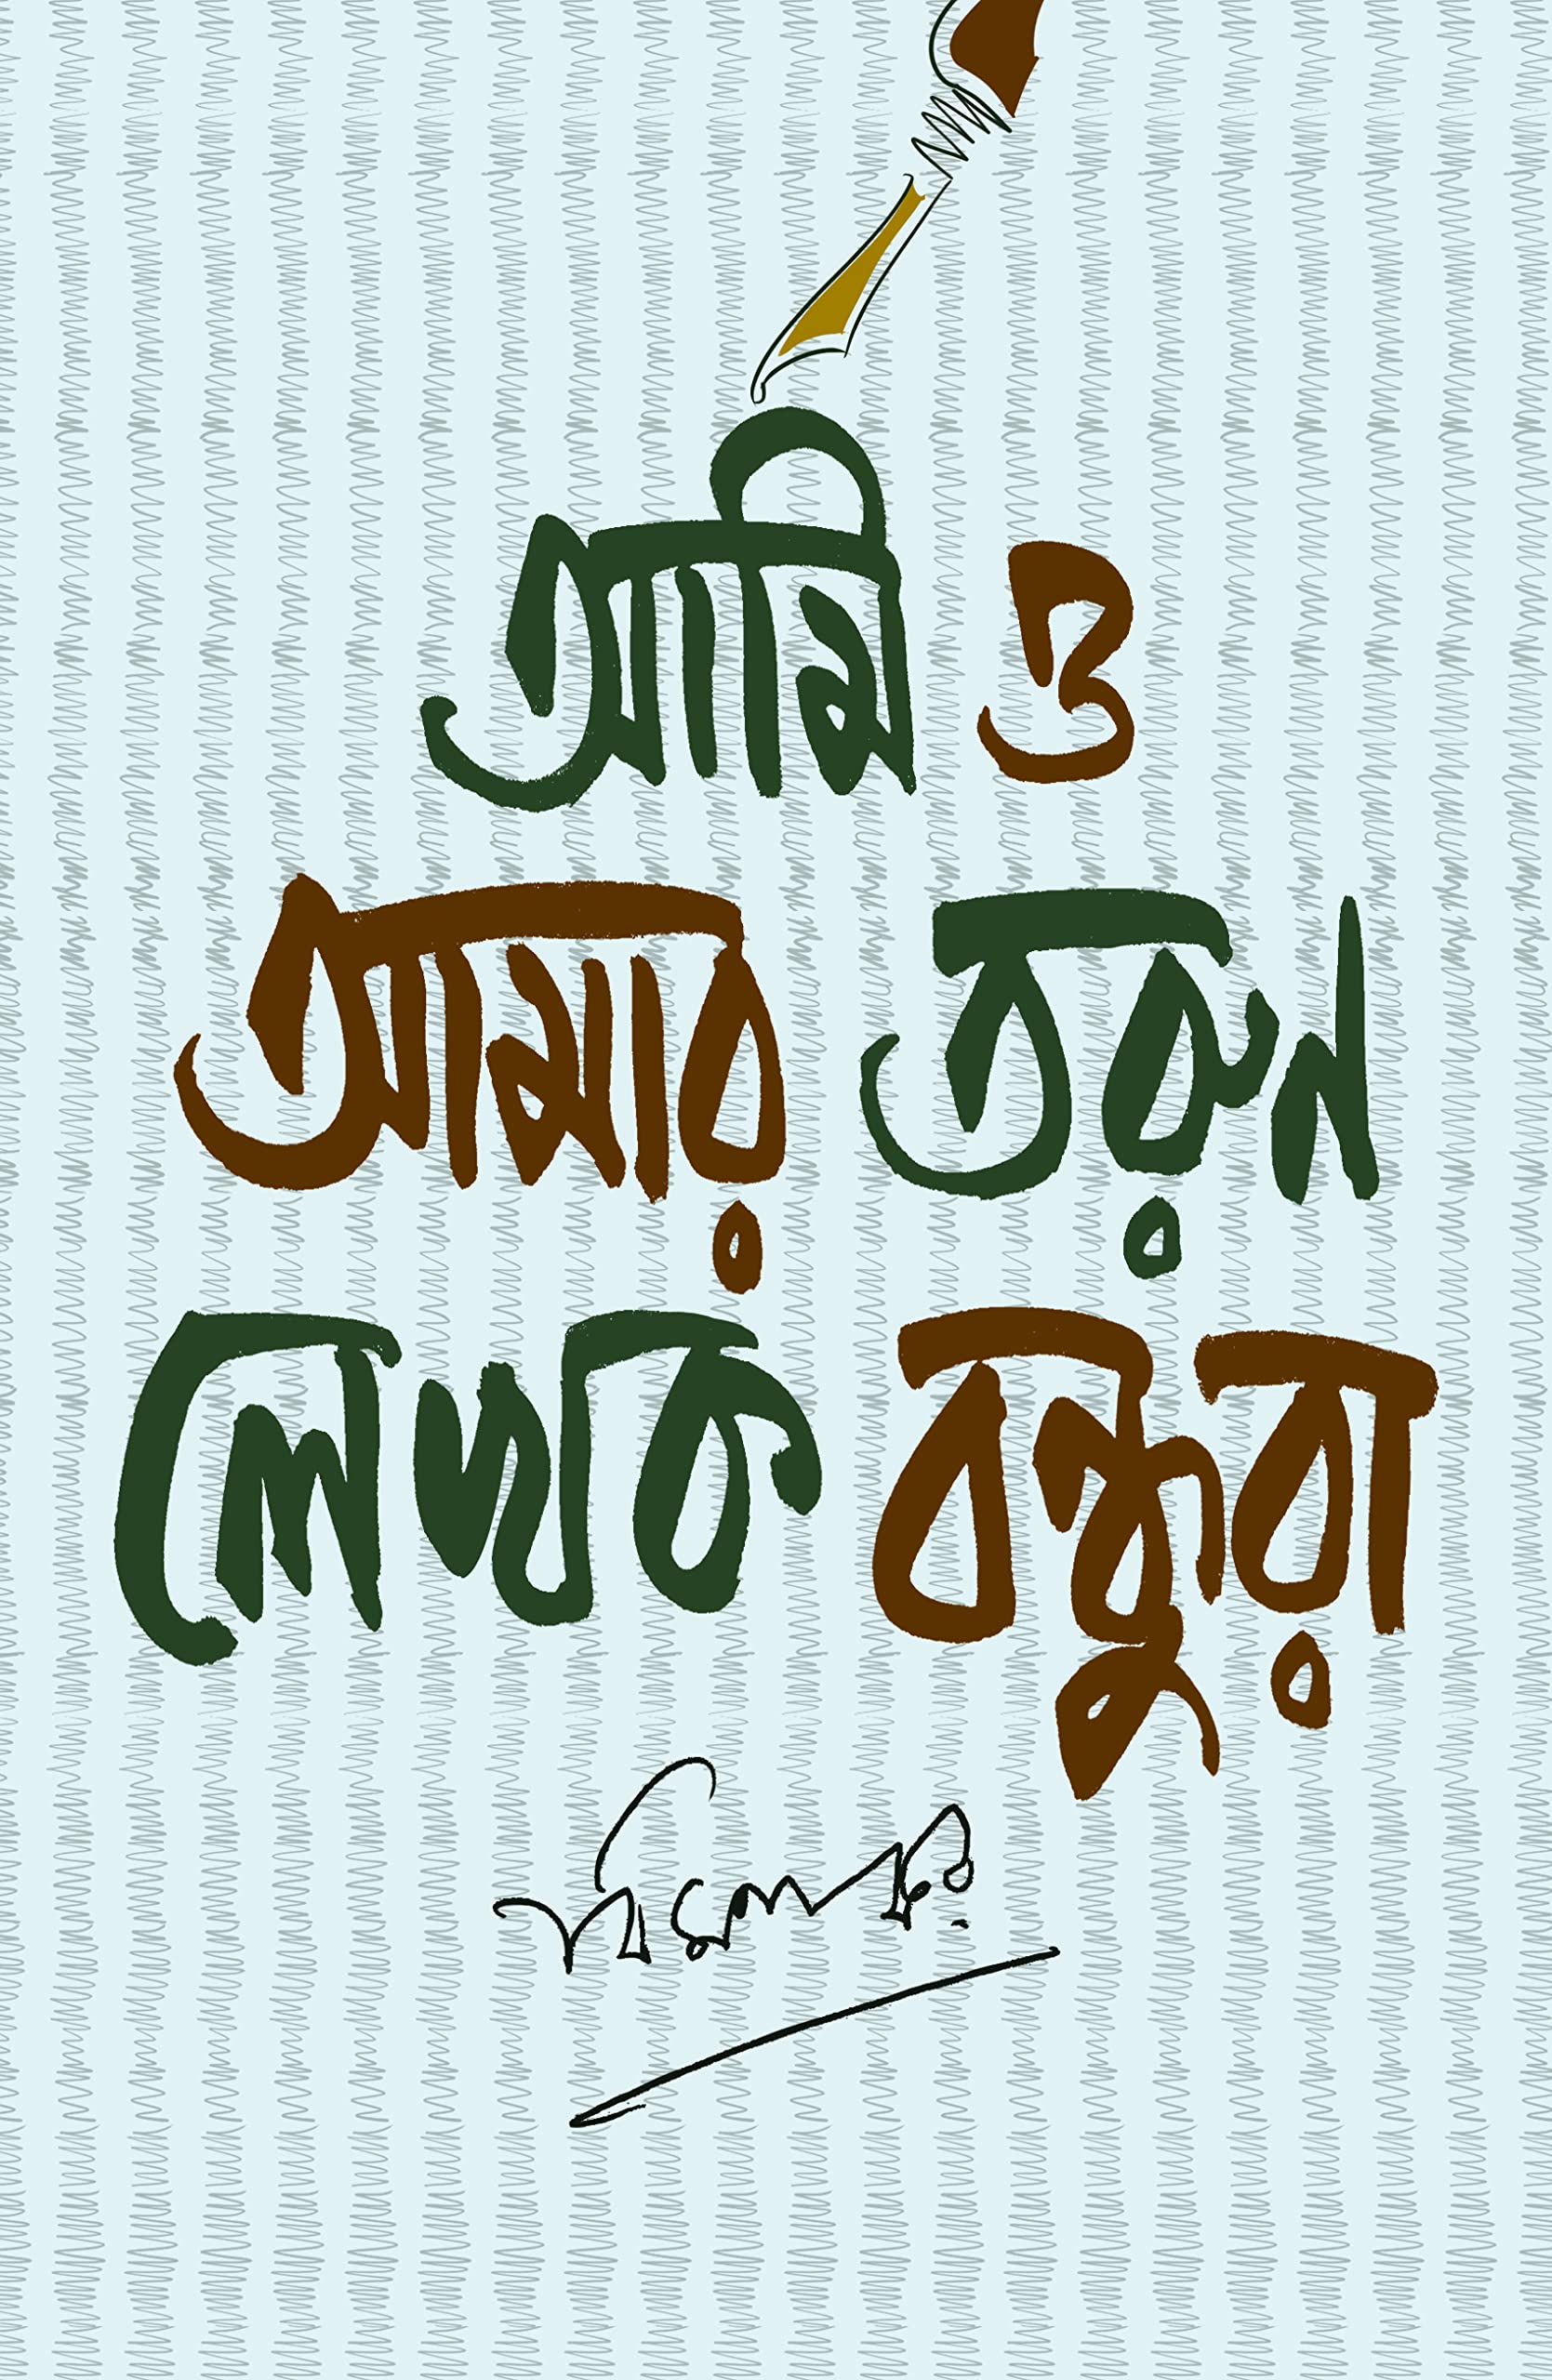 আমি ও
আমার তরুণ
লেখক বন্ধুরা